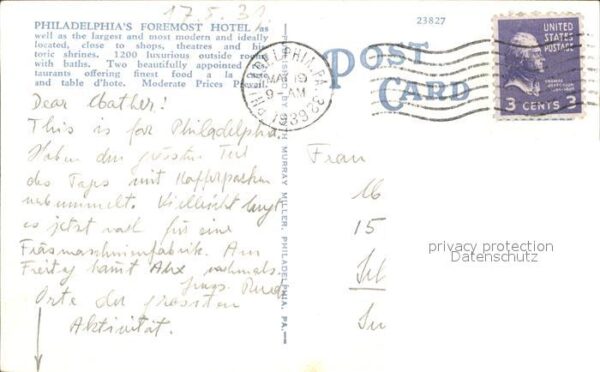 17.5.39
PHILADELPHIA'S FOREMOST HOTEL as
well as the largest and most modern and ideally
located, close to shops, theatres and his-
toric shrines. 1200 luxurious outside rooms
with baths. Two beautifully appointed
taurants offering finest food a la
and table d'hote. Moderate Prices Prevail.
23827
POST
CARD
PHILADELPHIA, PA.
MAY 19
9-AM
1939
UNITED
STATES
POSTAGE
3 CENTS 3
PUBLISHED BY MURRAY MILLER, PHILADELPHIA, PA.
Dear Mother!
This is for Philadelphia.
Haben den grössten Teil
des Tages mit Kofferpacken
Vielleicht
es jetzt noch für eine
Fräsmaschinenfabrik. Am
Freitag kommt Alex nochmals.
Orte der grössten
Aktivität.
Frau
15
privacy protection
Datenschutz